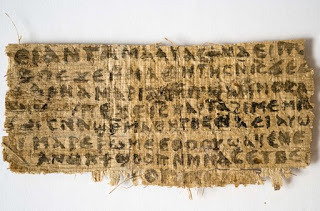 ⲉⲓ ⲁⲛ ⲧⲁⲙⲁⲁⲩ ⲁⲥϯ ⲛⲁⲉⲓ
ⲡⲉϫⲉ ⲙⲙⲁⲑⲏⲧⲏⲥ ⲛⲓⲥ ϫⲉ
ⲁⲣⲛⲁ ⲙⲁⲣⲓⲁⲙ ⲙⲡϣⲁ ⲙⲙⲟⲥ ⲁ
ⲡⲉϫⲉ ⲓⲥ ⲛⲁⲩ ⲧⲁϩⲓⲙⲉ ⲙⲛ
ⲥⲛⲁϣⲣⲙⲁⲑⲏⲧⲏⲥ ⲛⲁⲉⲓ ⲁⲩⲱ
ⲓ ⲙⲁⲣⲉⲣⲱⲙⲉ ⲉⲑⲟⲟⲩ ϣⲁϥⲉⲛⲉ
ⲁⲛⲟⲕ ϯϣⲟⲟⲡ ⲛⲙⲙⲁⲥ ⲉⲧⲃⲉ